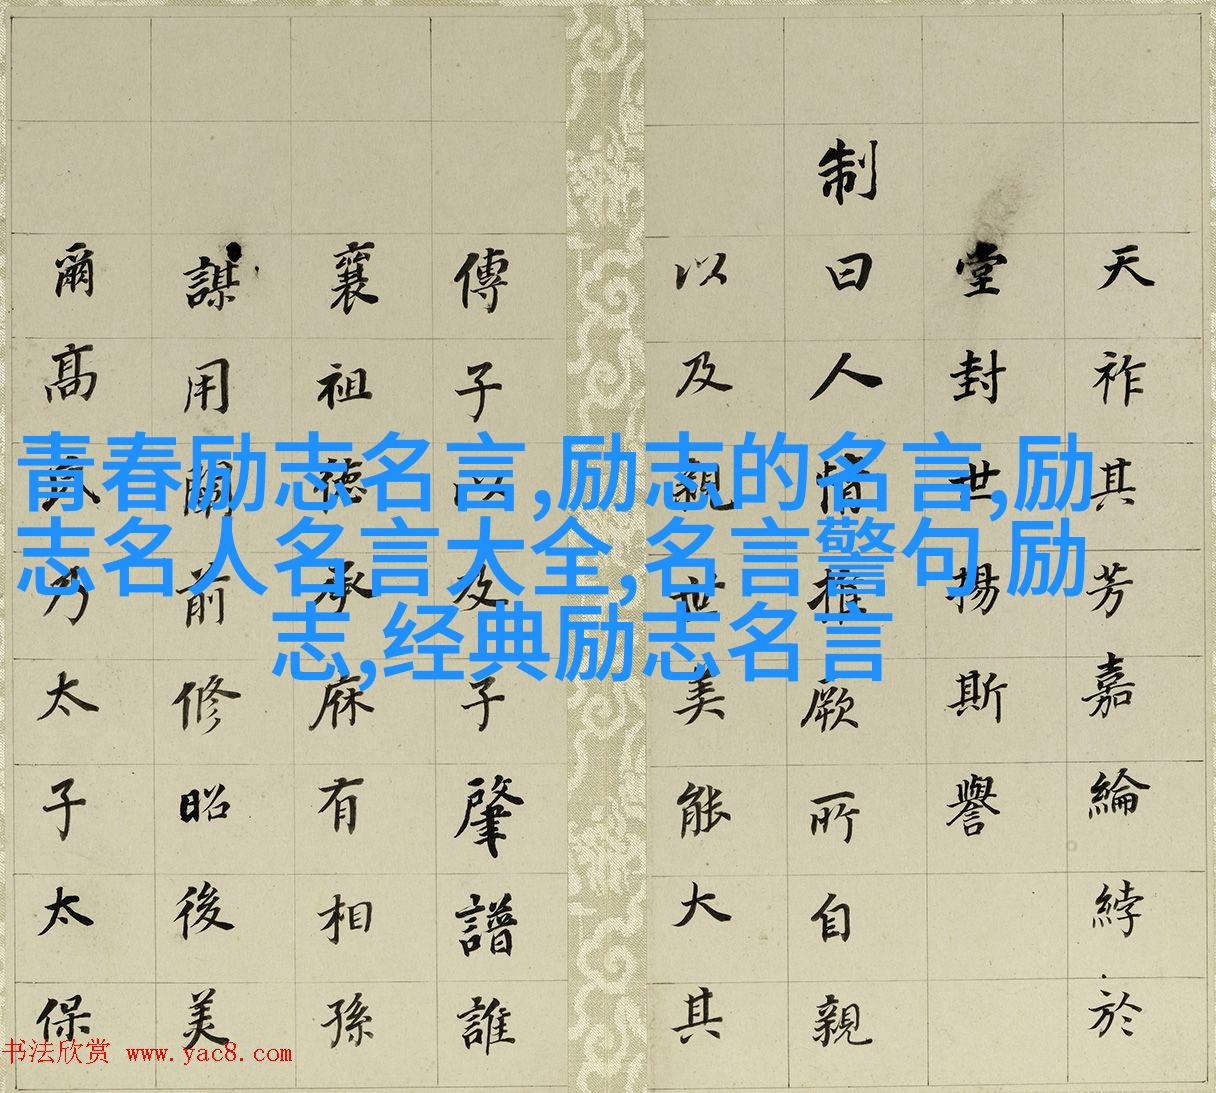 天祚其芳嘉綸綍於
堂封世揚斯譽
制曰人情推厥所自親
以及親世美能大其
傳子以及子肇譜誰
襄祖德承庥有相孫
謀用闡前修昭後美
爾高乃太子太保
青春励志名言,励志的名言,励
志名人名言大全,名言警句,励
志,经典励志名言
书法欣赏 www.yac8.com